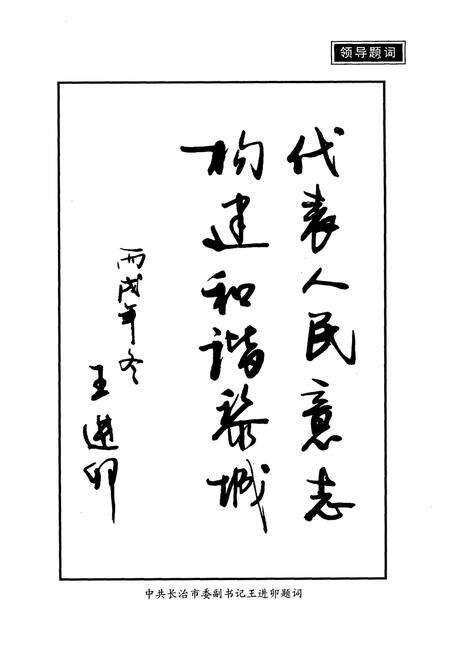 领导题词
代表人民意志
构建和谐黎城
丙戌年冬
王进卯
中共长治市委副书记王进卯题词